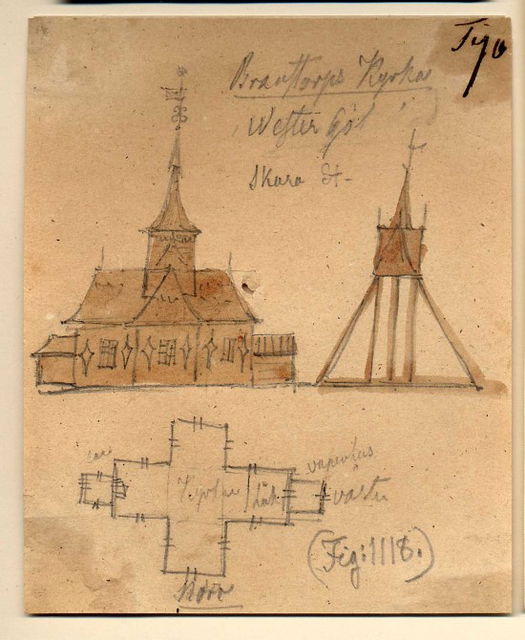 Brandtorps Kyrka
Wester Göt
Skara St-
Kyrkan
vapenhus
väster
Norr
(Fig: 1118.)